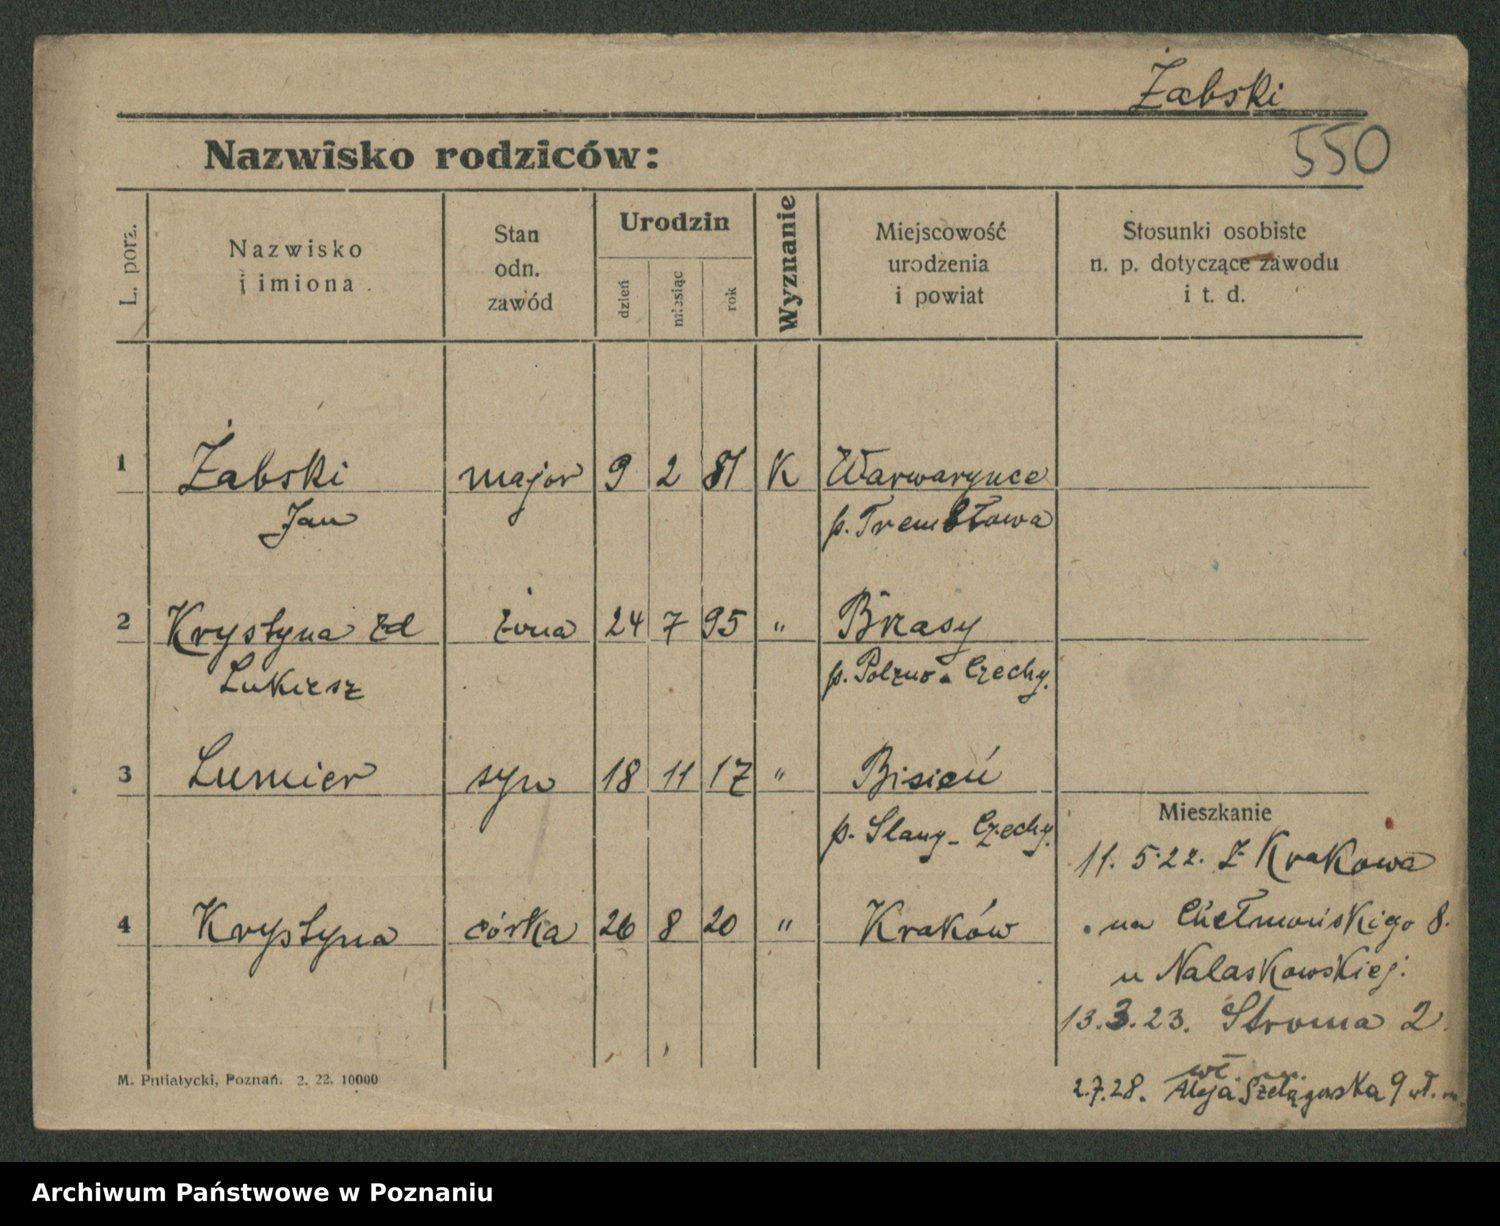 Żabski
550
Nazwisko rodziców:
L. porz.
Nazwisko
i imiona
Stan
odn.
zawód
Urodzin
dzień
miesiąc
rok
Wyznanie
Miejscowość
urodzenia
i powiat
Stosunki osobiste
n. p. dotyczące zawodu
i t. d.
1 Żabski major 9 2 81 K Warwarynce
Jan p. Trembłowa
2 Krystyna zd żona 24 7 95 " Brzasy
p. Czechy.
3 Lumier syn 18 11 17 " Bisień
p. Slany - Czechy.
Mieszkanie
11. 5.22. z Krakowa
4 Krystyna córka 26 8 20 " Kraków
na Chełmońskiego 8.
u Nalaskowskiej.
13.3.23. Stroma 2.
2.7.28. Aleja Szelągowska 9 wł.
M. Putiatycki, Poznań. 2. 22. 10000
Archiwum Państwowe w Poznaniu